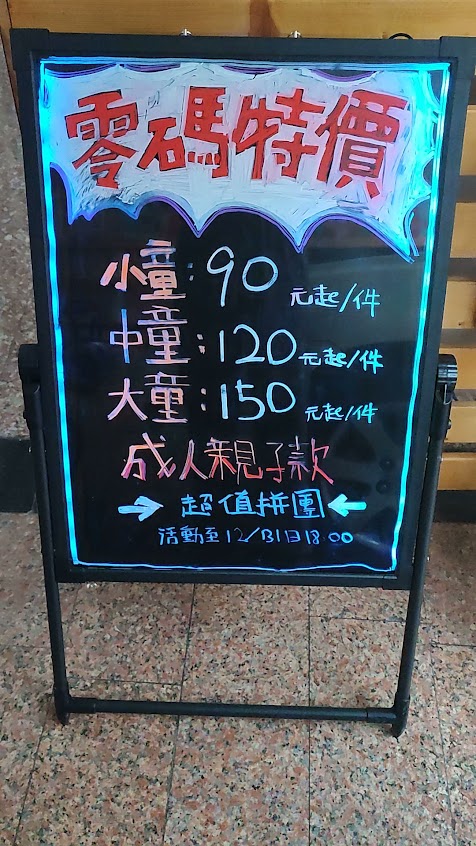 零碼特價
小童:90元起/件
中童:120元起/件
大童:150元起/件
成人親子款
→ 超值拼團 ←
活動至12/31日18:00